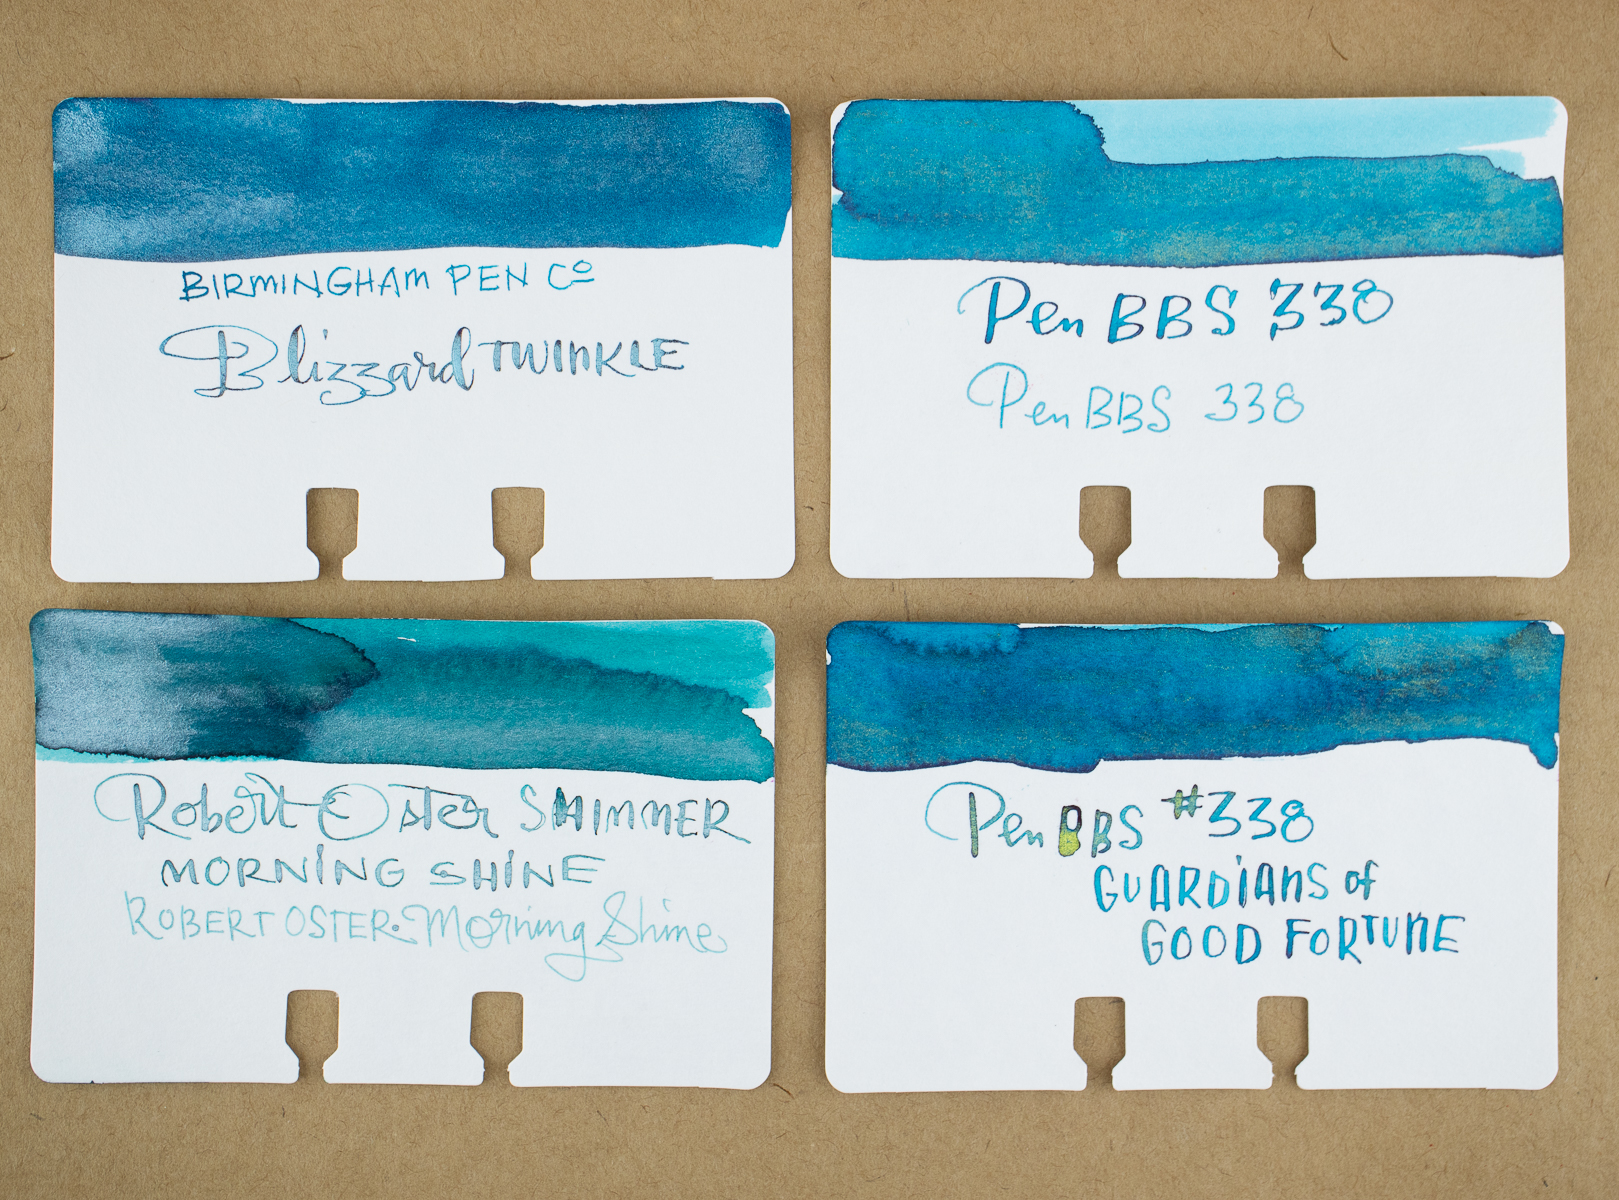 BIRMINGHAM PEN Co
Blizzard TWINKLE
Pen BBS 338
Pen BBS 338
Robert Oster SHIMMER
MORNING SHINE
ROBERT OSTER · Morning Shine
Pen BBS #338
GUARDIANS of
GOOD FORTUNE